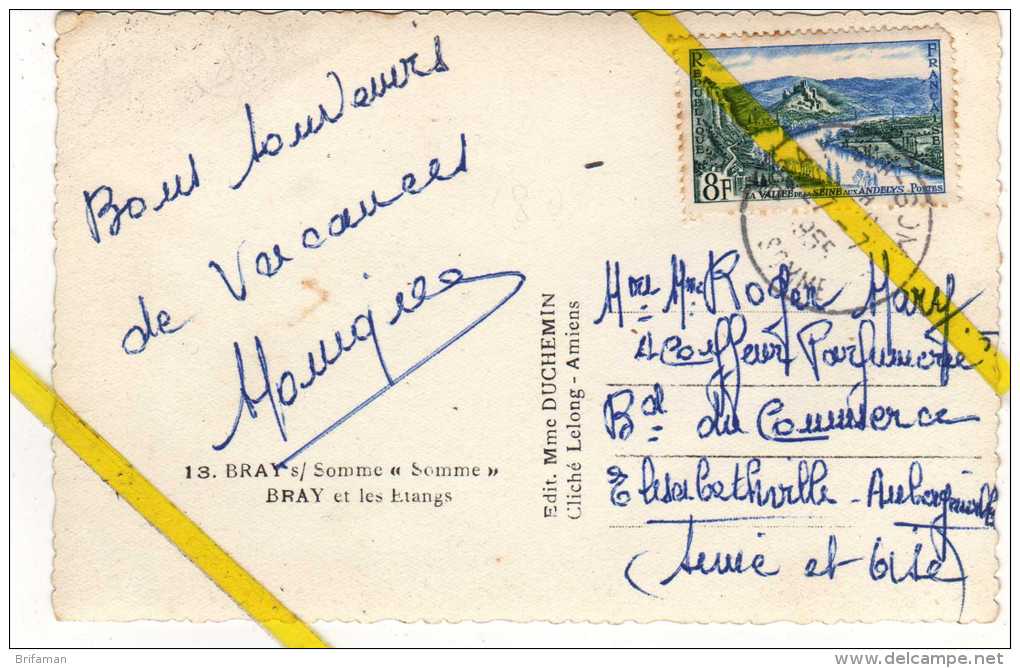 Bons souvenirs
de Vacances
13. BRAY s/ Somme « Somme »
BRAY et les Etangs
Edit. Mme DUCHEMIN
Cliché Lelong - Amiens
REPUBLIQUE FRANÇAISE
8F
LA VALLÉE DE LA SEINE AUX ANDELYS POSTES
27-7
1955
SOMME
Mr Mme Roger
Coiffeur Parfumerie
Bd du Commerce
Elisabethville - Aubergenville
(Seine et Oise)
Brifaman
delcampe.net